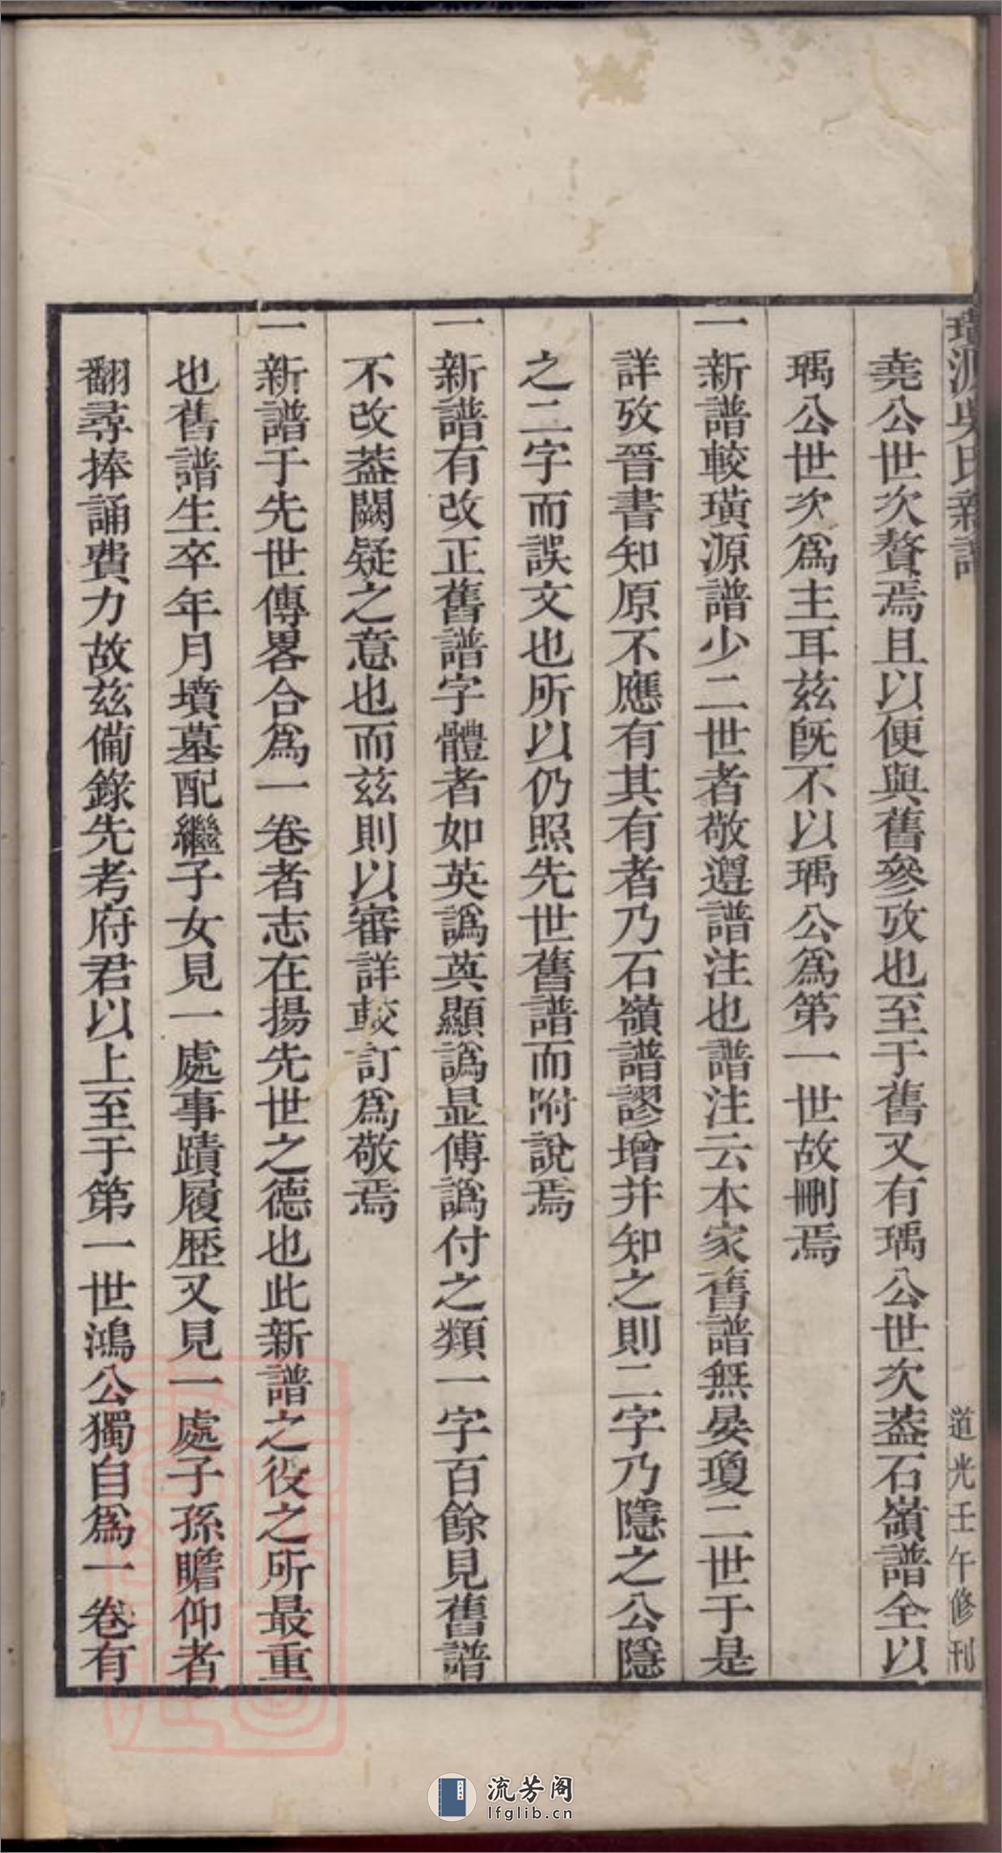 璜源吳氏新譜
道光壬午修刊
堯公世次贅焉且以便與舊參攷也至于舊又有瑀公世次葢石嶺譜全以
瑀公世次爲主耳兹旣不以瑀公爲第一世故刪焉
一新譜較璜源譜少二世者敬遵譜注也譜注云本家舊譜無晏瓊二世于是
詳攷晉書知原不應有其有者乃石嶺譜謬增并知之則二字乃隱之公隱
之二字而誤文也所以仍照先世舊譜而附說焉
一新譜有改正舊譜字體者如英譌䒠顯譌显傅譌付之類一字百餘見舊譜
不改葢闕疑之意也而兹則以審詳較訂爲敬焉
一新譜于先世傳畧合爲一卷者志在揚先世之德也此新譜之役之所最重
也舊譜生卒年月墳墓配繼子女見一處事蹟履歷又見一處子孫瞻仰者
翻尋捧誦費力故兹備錄先考府君以上至于第一世鴻公獨自爲一卷有
流芳阁
lfglib.cn